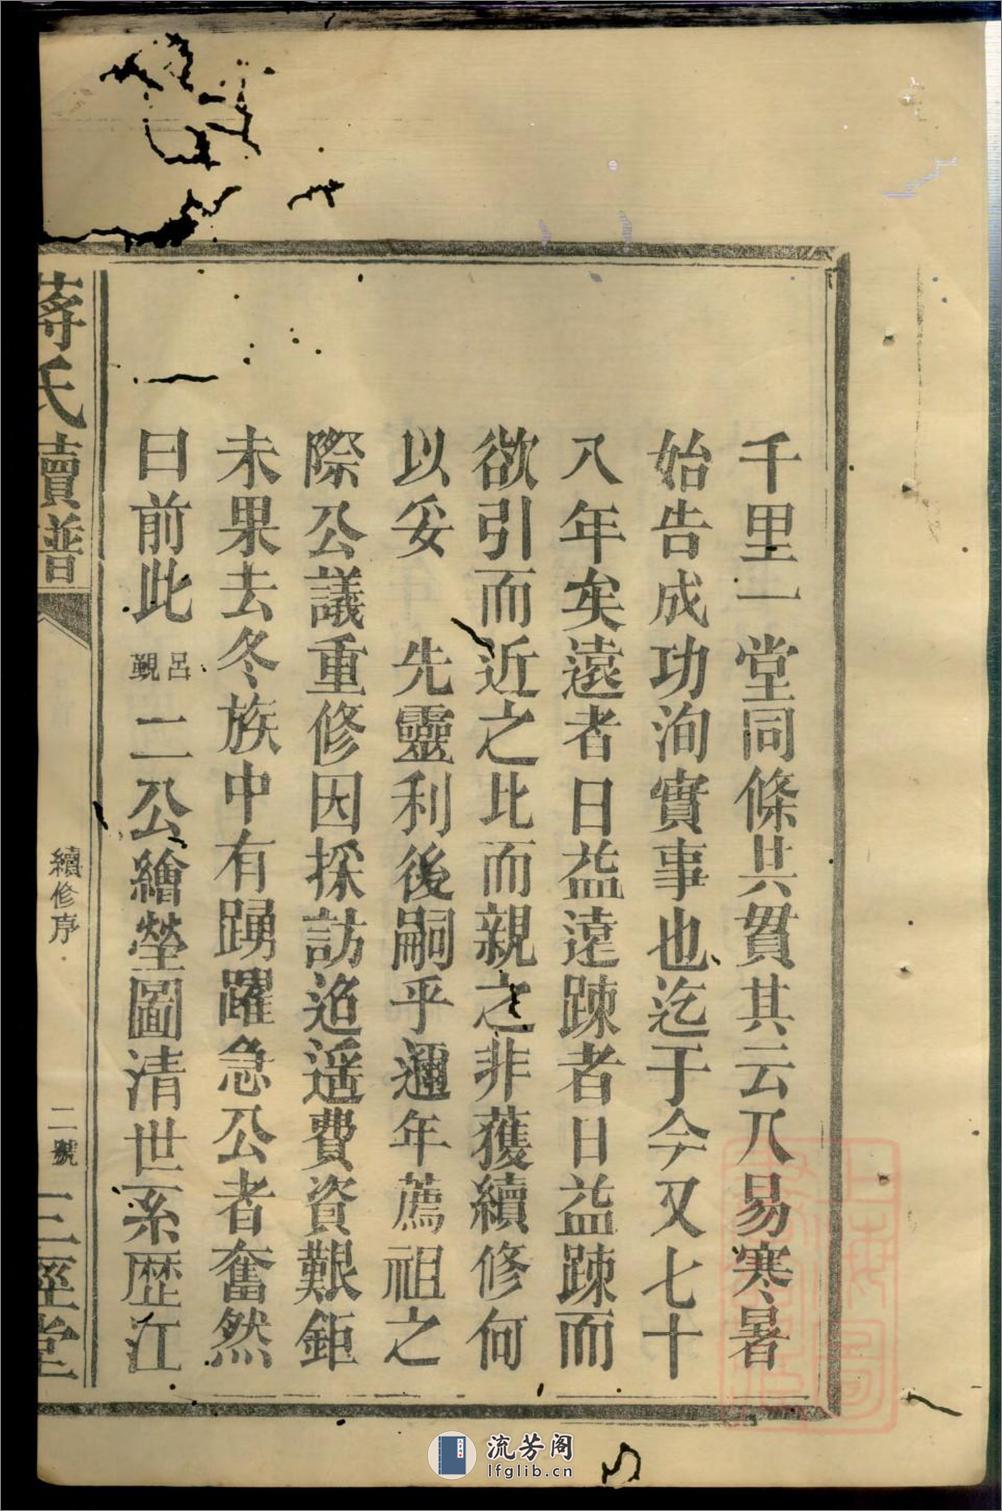 千里一堂同條共貫其云八易寒暑
始告成功洵實事也迄于今又七十
八年矣遠者日益遠踈者日益踈而
欲引而近之比而親之非獲續修何
以妥 先靈利後嗣乎邇年薦祖之
際公議重修因採訪迢遥費資艱鉅
未果去冬族中有踴躍急公者奮然
曰前此呂覲二公繪塋圖清世系歴江
蔣氏續譜
續修序
二號
三徑堂
流芳阁
lfglib.cn